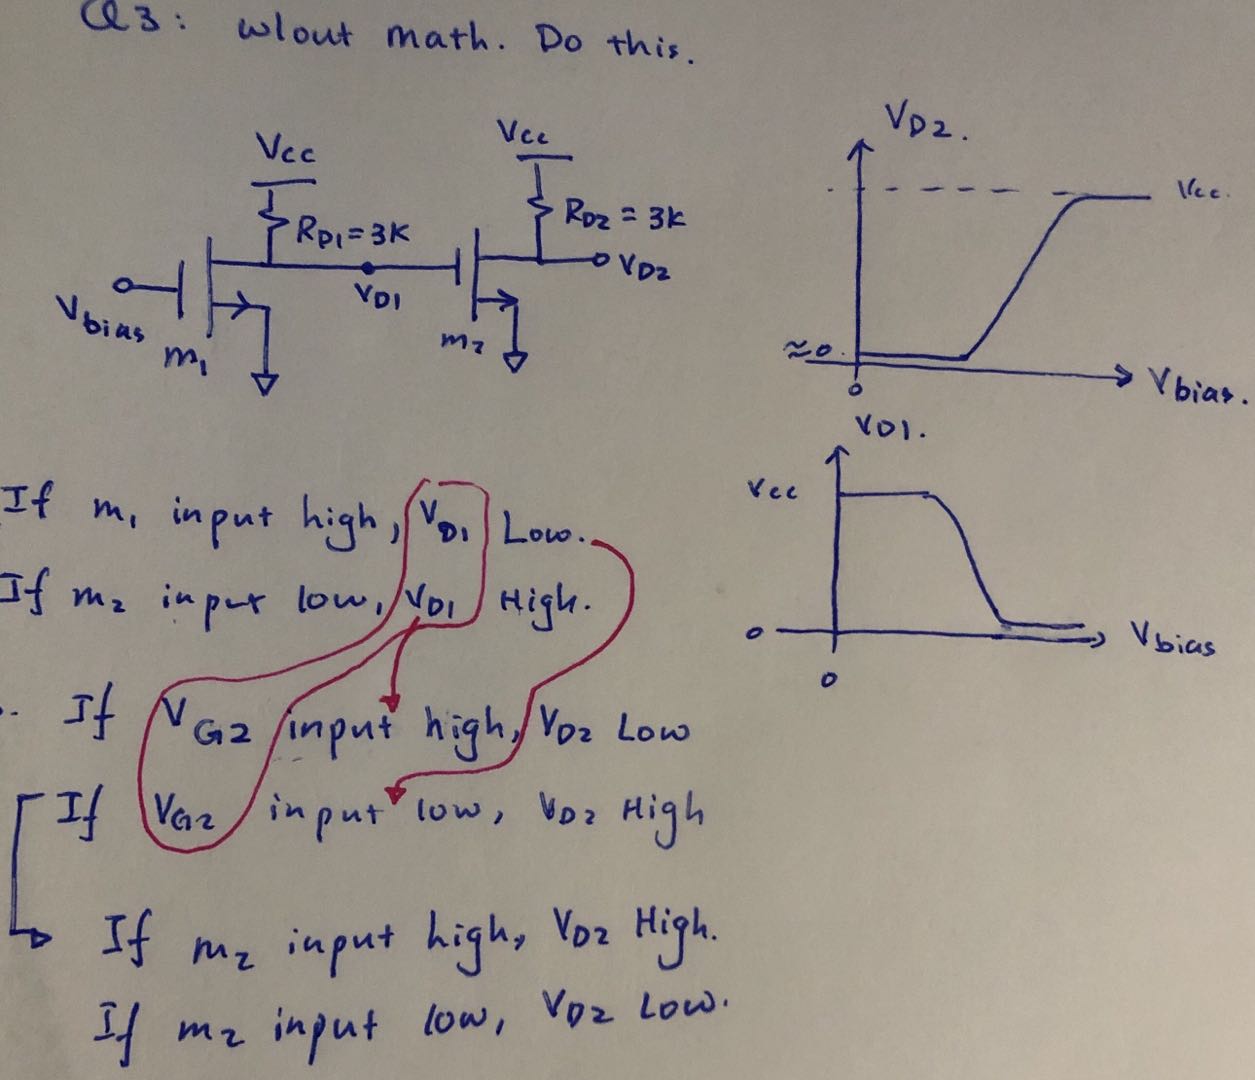 Q3: w/out math. Do this.
Vcc
Vcc
RD1 = 3K
RD2 = 3K
VD1
VD2
Vbias
m1
m2
VD2.
Vcc.
≈0.
0
Vbias.
VD1.
Vcc
0
Vbias
0
If m1 input high, VD1 Low.
If m2 input low, VD1 High.
If VG2 input high, VD2 Low
If VG2 input low, VD2 High
If m2 input high, VD2 High.
If m2 input low, VD2 Low.